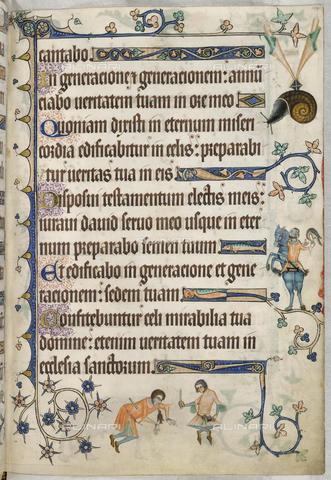 cantabo.
In generacione ⁊ generacionem: annu
ciabo ueritatem tuam in ore meo
Quoniam dixisti in eternum miseri
cordia edificabitur in celis: preparabi
tur ueritas tua in eis
Disposui testamentum electis meis:
iuraui dauid seruo meo usque in eter
num preparabo semen tuum
Et edificabo in generacione et gene
racionem: sedem tuam
Confitebuntur celi mirabilia tua
domine: etenim ueritatem tuam in
ecclesia sanctorum
ALINARI
ALINARI